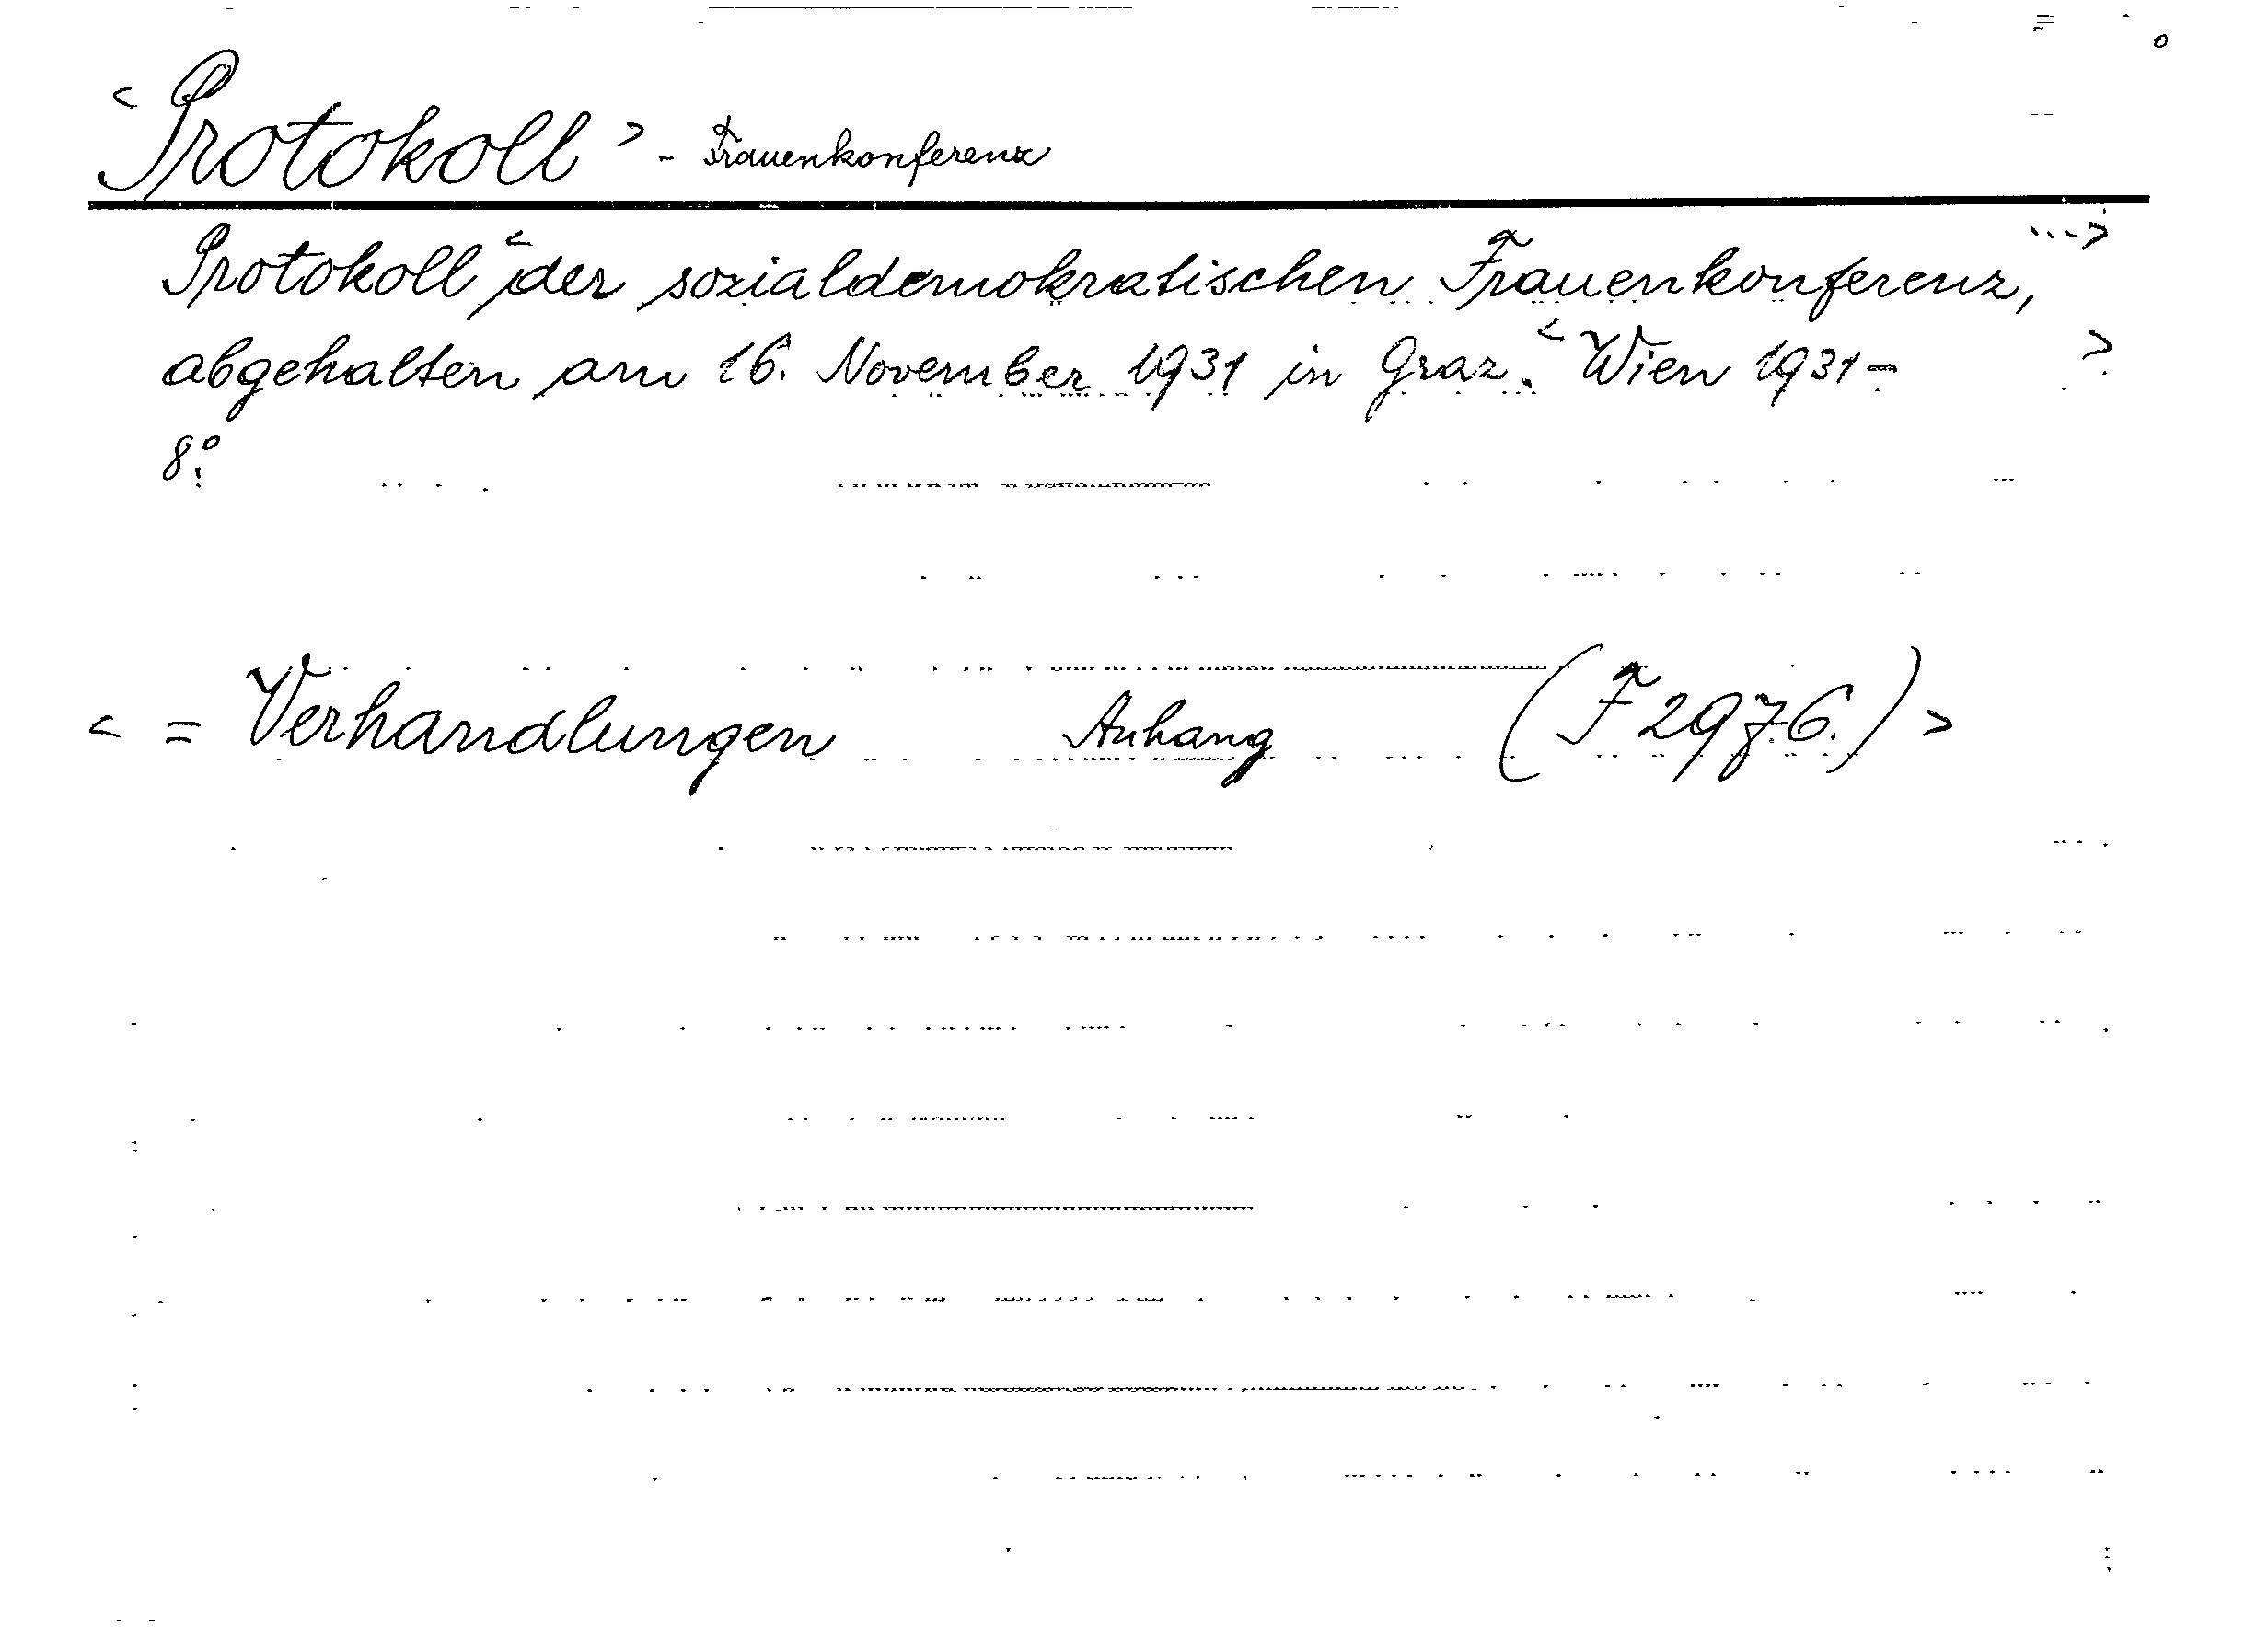 < Protokoll > - Frauenkonferenz
Protokoll < der sozialdemokratischen Frauenkonferenz, ...>
abgehalten am 16. November 1931 in Graz. < Wien 1931- >
8°.
< = Verhandlungen Anhang (F 2976.) >